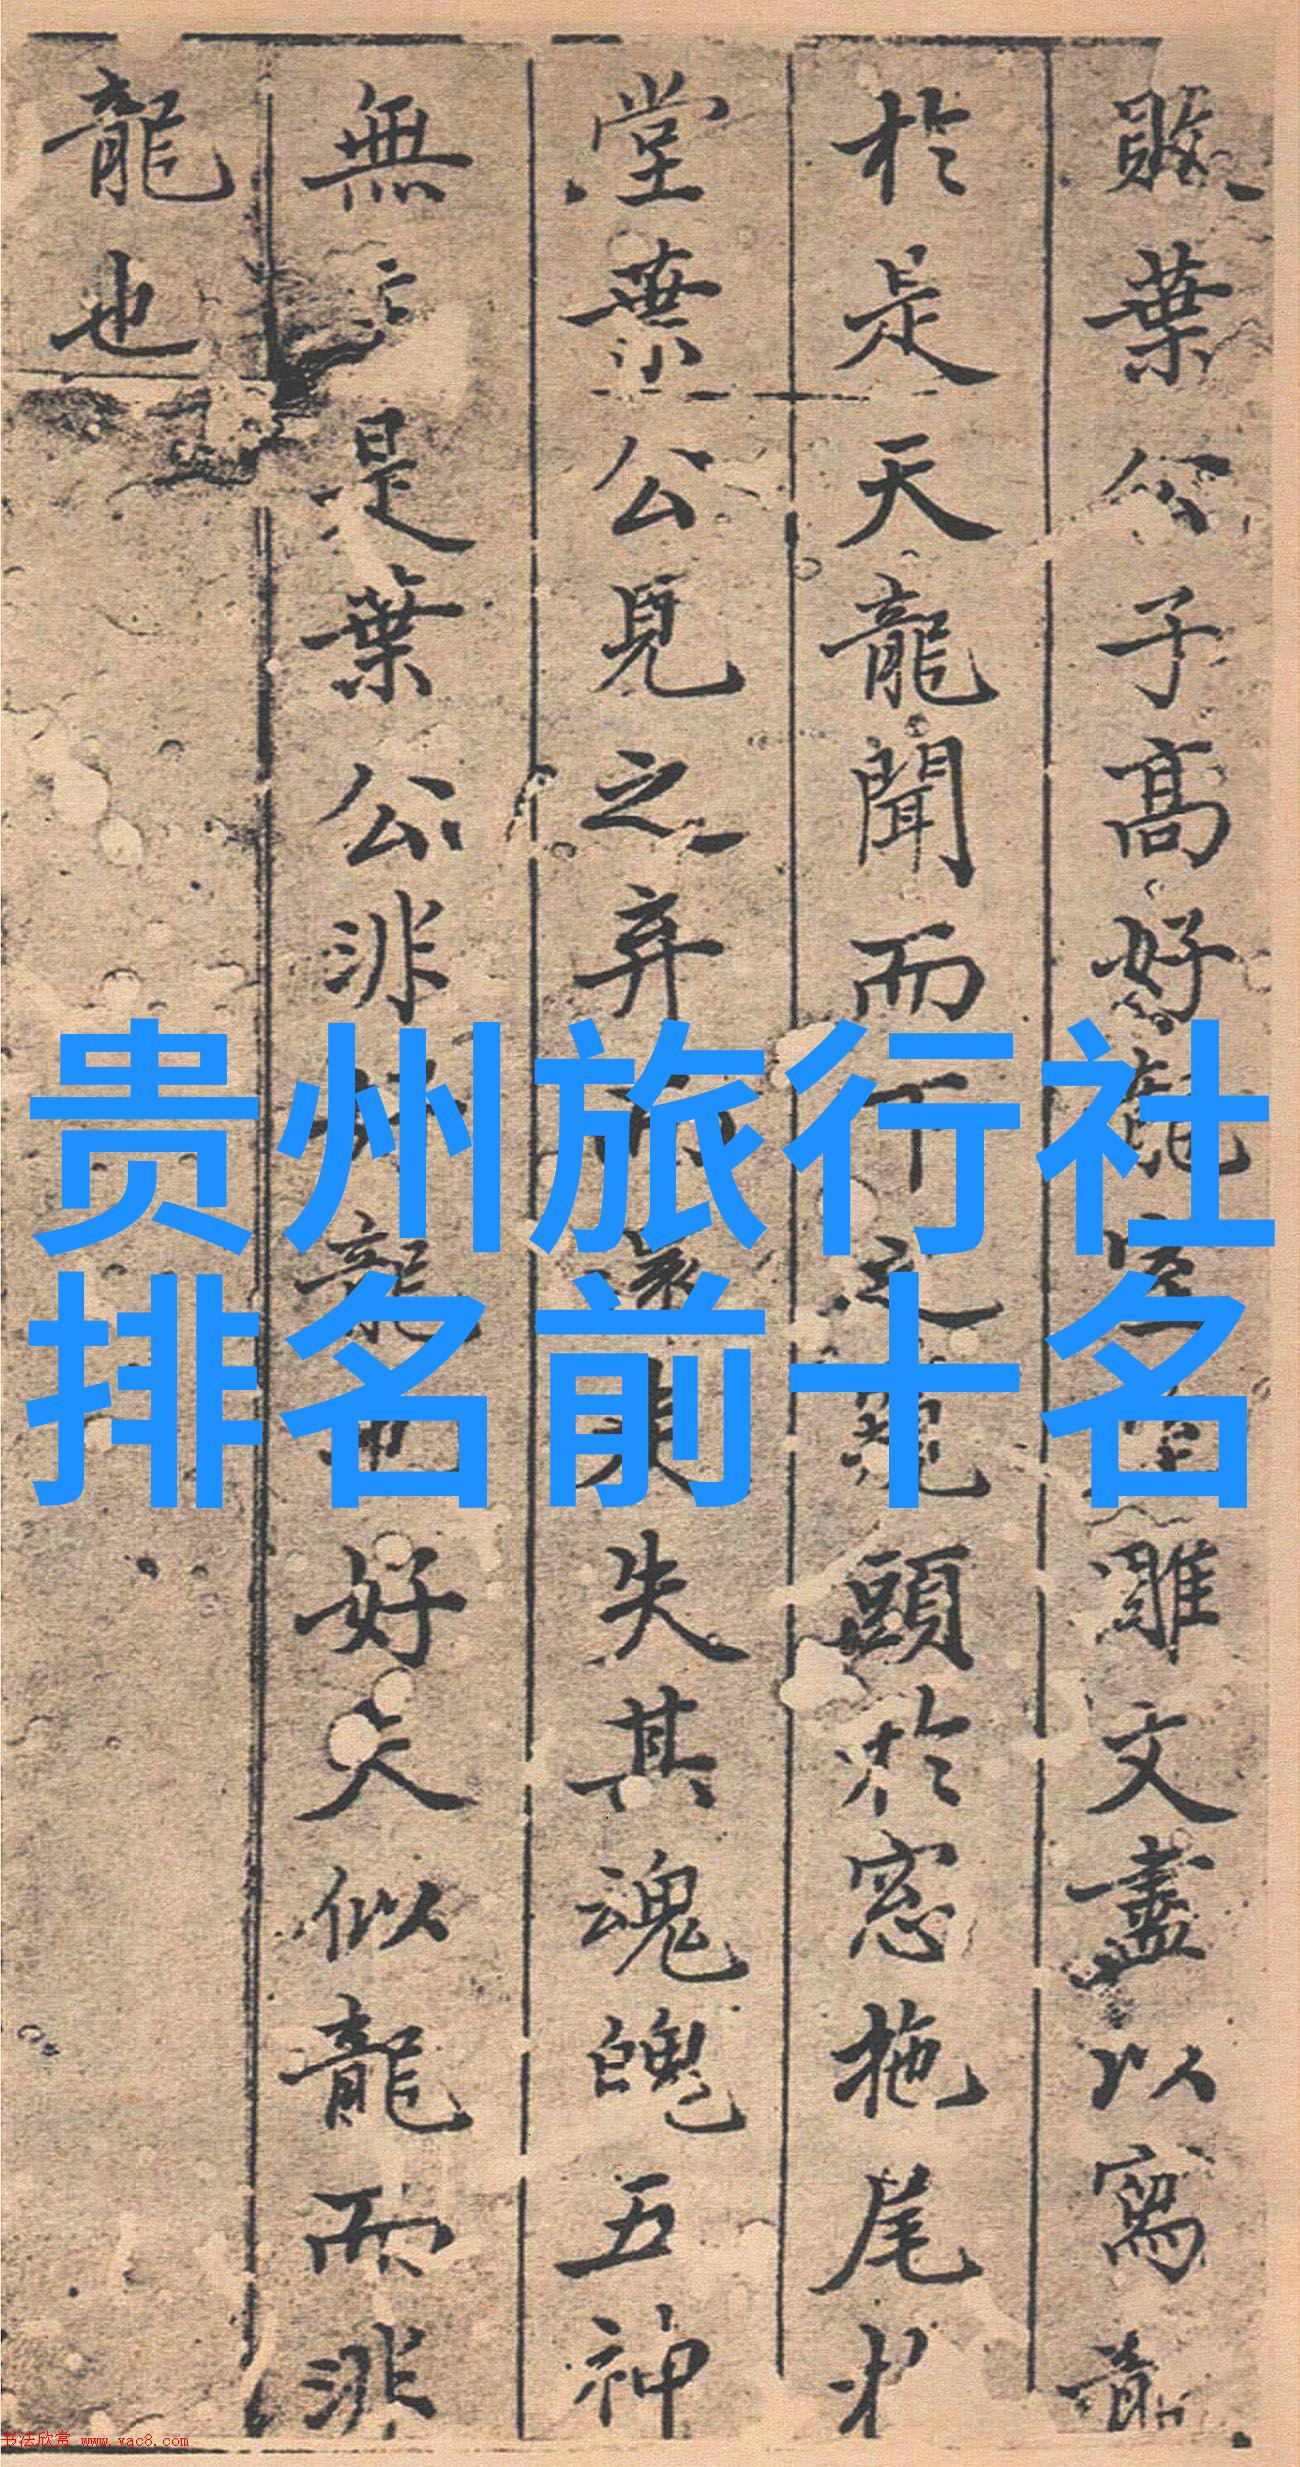 葉公子高好龍室雕文盡以寫龍
於是天龍聞而下之窺頭於窓拖尾於
堂葉公見之弃而還走失其魂魄五神
無主是葉公非好龍也好夫似龍而非
龍也
贵州旅行社
排名前十名
书法欣赏 www.yac8.com